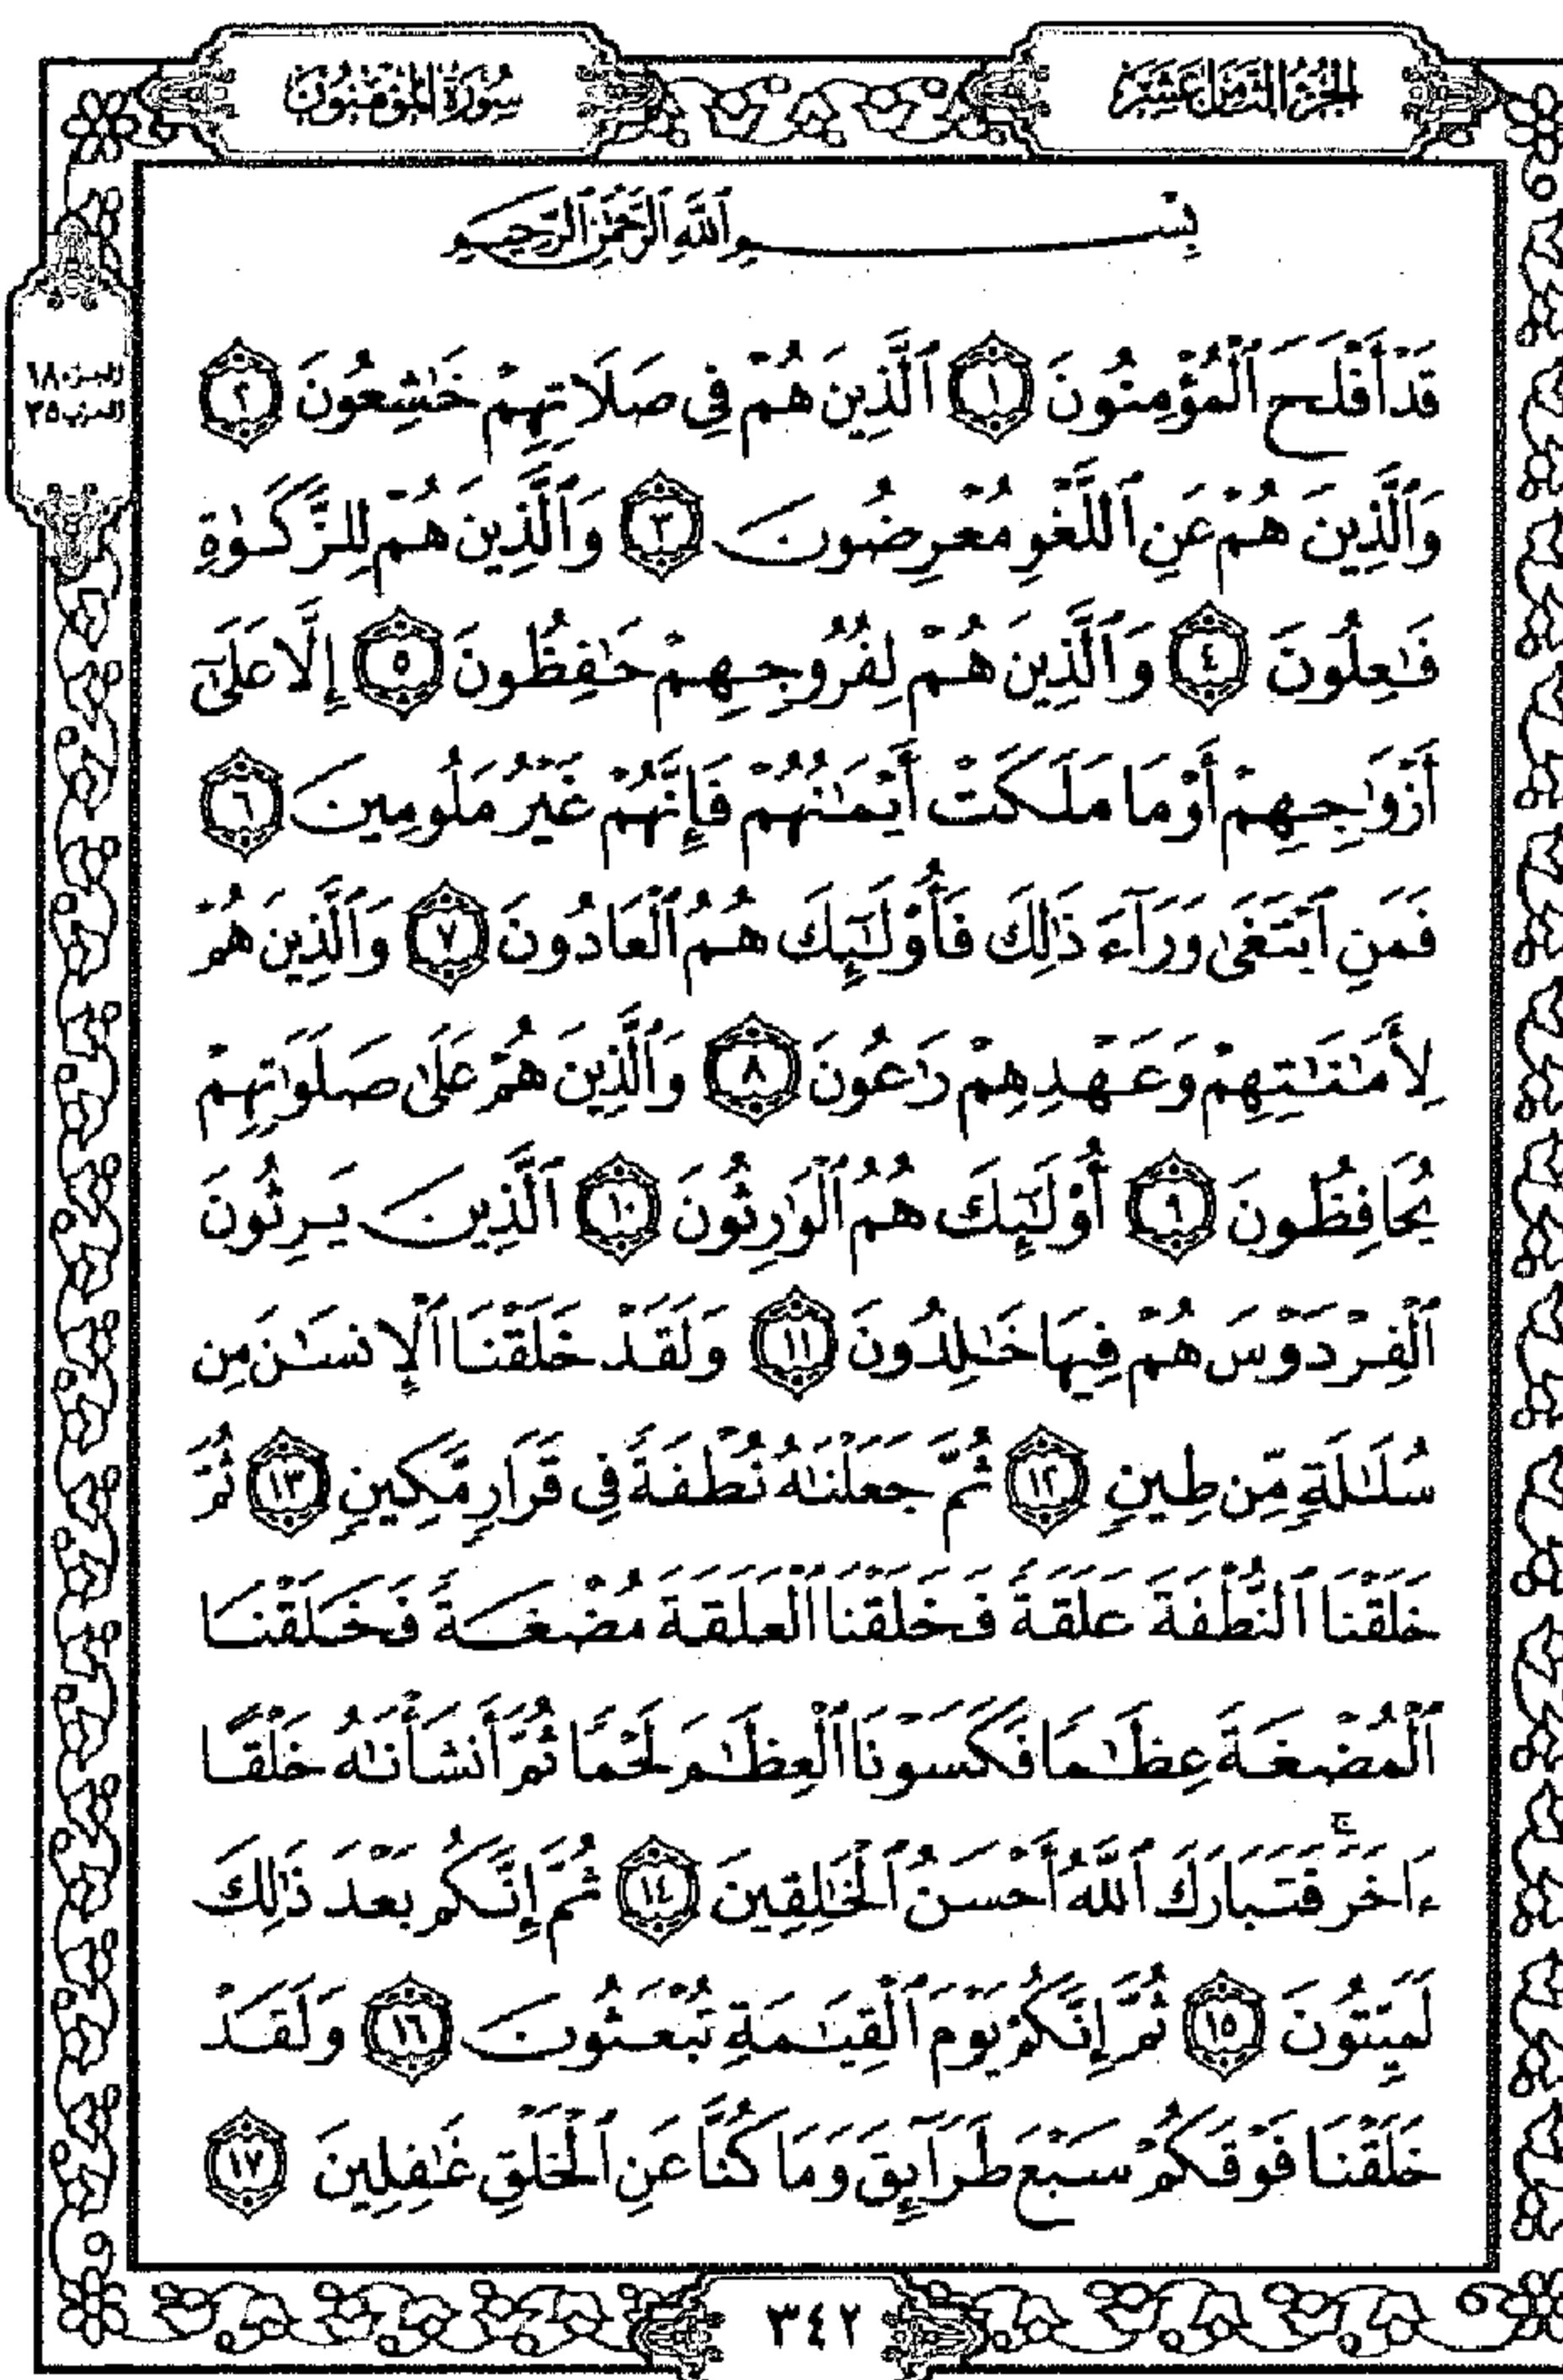 الجزء الثامن عشر
سورة المؤمنون
بِسْمِ ٱللَّهِ ٱلرَّحْمَٰنِ ٱلرَّحِيمِ
الجزء ١٨
الحزب ٣٥
قَدْ أَفْلَحَ ٱلْمُؤْمِنُونَ ١ ٱلَّذِينَ هُمْ فِى صَلَاتِهِمْ خَٰشِعُونَ ٢
وَٱلَّذِينَ هُمْ عَنِ ٱللَّغْوِ مُعْرِضُونَ ٣ وَٱلَّذِينَ هُمْ لِلزَّكَوٰةِ
فَٰعِلُونَ ٤ وَٱلَّذِينَ هُمْ لِفُرُوجِهِمْ حَٰفِظُونَ ٥ إِلَّا عَلَىٰٓ
أَزْوَٰجِهِمْ أَوْ مَا مَلَكَتْ أَيْمَٰنُهُمْ فَإِنَّهُمْ غَيْرُ مَلُومِينَ ٦
فَمَنِ ٱبْتَغَىٰ وَرَآءَ ذَٰلِكَ فَأُو۟لَٰٓئِكَ هُمُ ٱلْعَادُونَ ٧ وَٱلَّذِينَ هُمْ
لِأَمَٰنَٰتِهِمْ وَعَهْدِهِمْ رَٰعُونَ ٨ وَٱلَّذِينَ هُمْ عَلَىٰ صَلَوَٰتِهِمْ
يُحَافِظُونَ ٩ أُو۟لَٰٓئِكَ هُمُ ٱلْوَٰرِثُونَ ١٠ ٱلَّذِينَ يَرِثُونَ
ٱلْفِرْدَوْسَ هُمْ فِيهَا خَٰلِدُونَ ١١ وَلَقَدْ خَلَقْنَا ٱلْإِنسَٰنَ مِن
سُلَٰلَةٍ مِّن طِينٍ ١٢ ثُمَّ جَعَلْنَٰهُ نُطْفَةً فِى قَرَارٍ مَّكِينٍ ١٣ ثُمَّ
خَلَقْنَا ٱلنُّطْفَةَ عَلَقَةً فَخَلَقْنَا ٱلْعَلَقَةَ مُضْغَةً فَخَلَقْنَا
ٱلْمُضْغَةَ عِظَٰمًا فَكَسَوْنَا ٱلْعِظَٰمَ لَحْمًا ثُمَّ أَنشَأْنَٰهُ خَلْقًا
ءَاخَرَ ۚ فَتَبَارَكَ ٱللَّهُ أَحْسَنُ ٱلْخَٰلِقِينَ ١٤ ثُمَّ إِنَّكُم بَعْدَ ذَٰلِكَ
لَمَيِّتُونَ ١٥ ثُمَّ إِنَّكُمْ يَوْمَ ٱلْقِيَٰمَةِ تُبْعَثُونَ ١٦ وَلَقَدْ
خَلَقْنَا فَوْقَكُمْ سَبْعَ طَرَآئِقَ وَمَا كُنَّا عَنِ ٱلْخَلْقِ غَٰفِلِينَ ١٧
٣٤٢